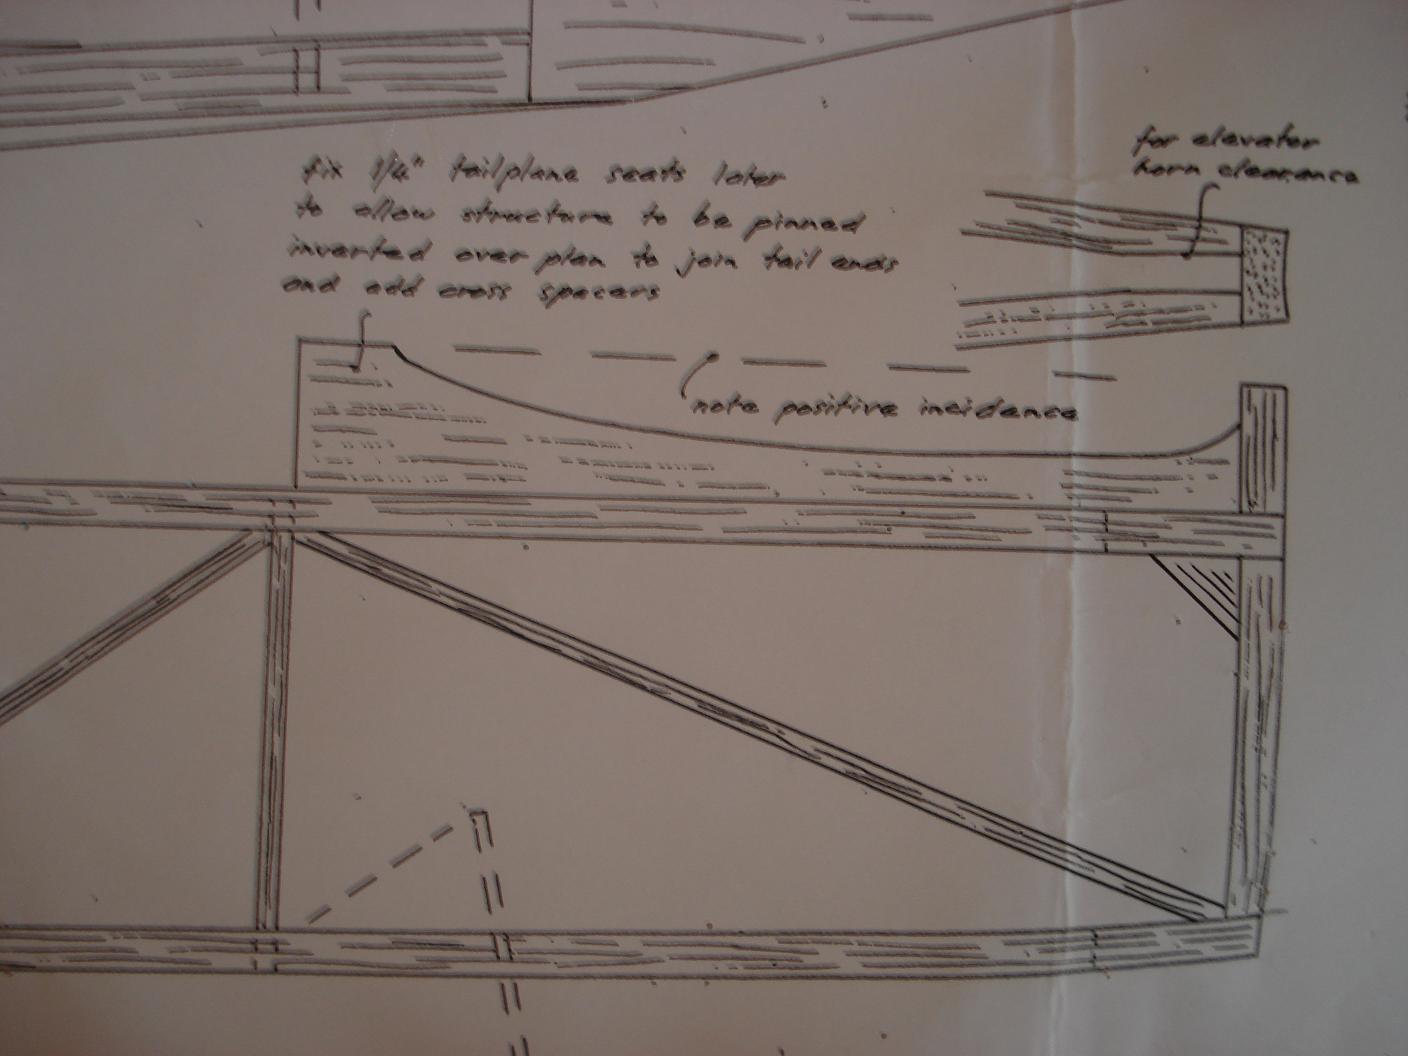 fix 1/4" tailplane seats later
to allow structure to be pinned
inverted over plan to join tail ends
and add cross spacers
for elevator
horn clearance
note positive incidence